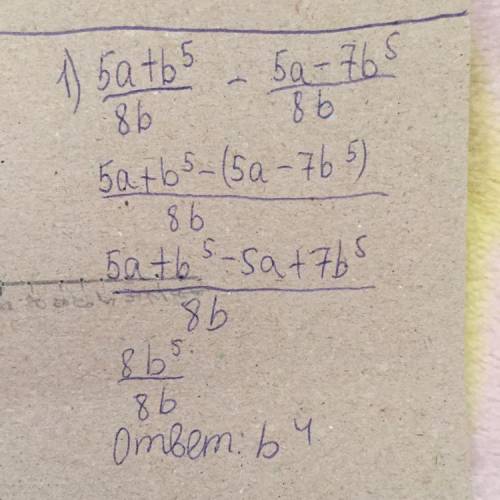 1) (5a+b⁵)/(8b) - (5a-7b⁵)/(8b)
(5a+b⁵-(5a-7b⁵))/(8b)
(5a+b⁵-5a+7b⁵)/(8b)
8b⁵/8b
Ответ: b⁴